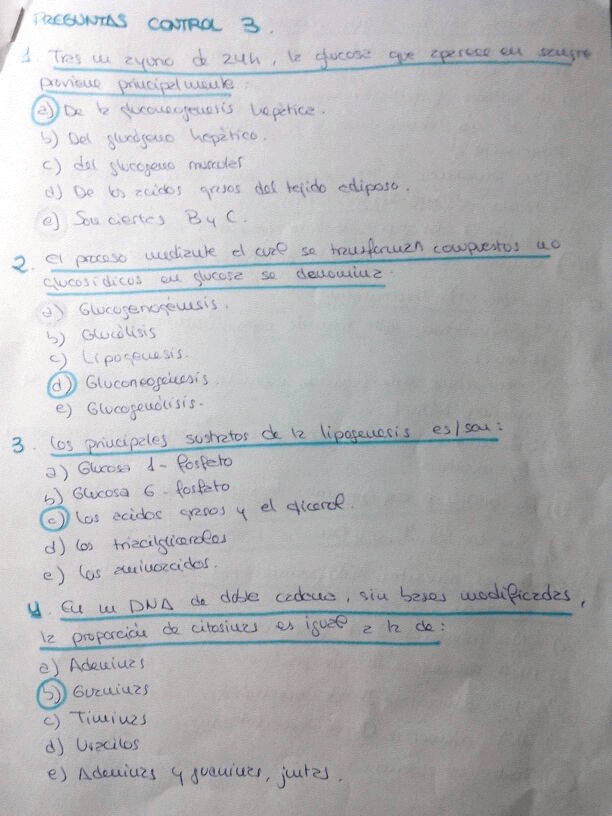 PREGUNTAS CONTROL 3.
1. Tras un ayuno de 24h, la glucosa que aparece en sangre
proviene principalmente:
a) De la gluconeogenesis hepática.
b) Del glucógeno hepático.
c) del glucogeno muscular
d) De los acidos grasos del tejido adiposo.
e) Son ciertas B y C.
2. El proceso mediante el cual se transforman compuestos no
glucosídicos en glucosa se denomina:
a) Glucogenogénesis.
b) Glucólisis
c) Lipogenesis.
d) Gluconeogénesis.
e) Glucogenólisis.
3. Los principales sustratos de la lipogenesis es/son:
a) Glucosa 1-fosfato
b) Glucosa 6-fosfato
c) los acidos grasos y el glicerol.
d) los triacilgliceroles
e) los aminoacidos.
4. En un DNA de doble cadena, sin bases modificadas,
la proporción de citosinas es igual a la de:
a) Adeninas
b) Guaninas
c) Timinas
d) Uracilos
e) Adeninas y guaninas, juntas.